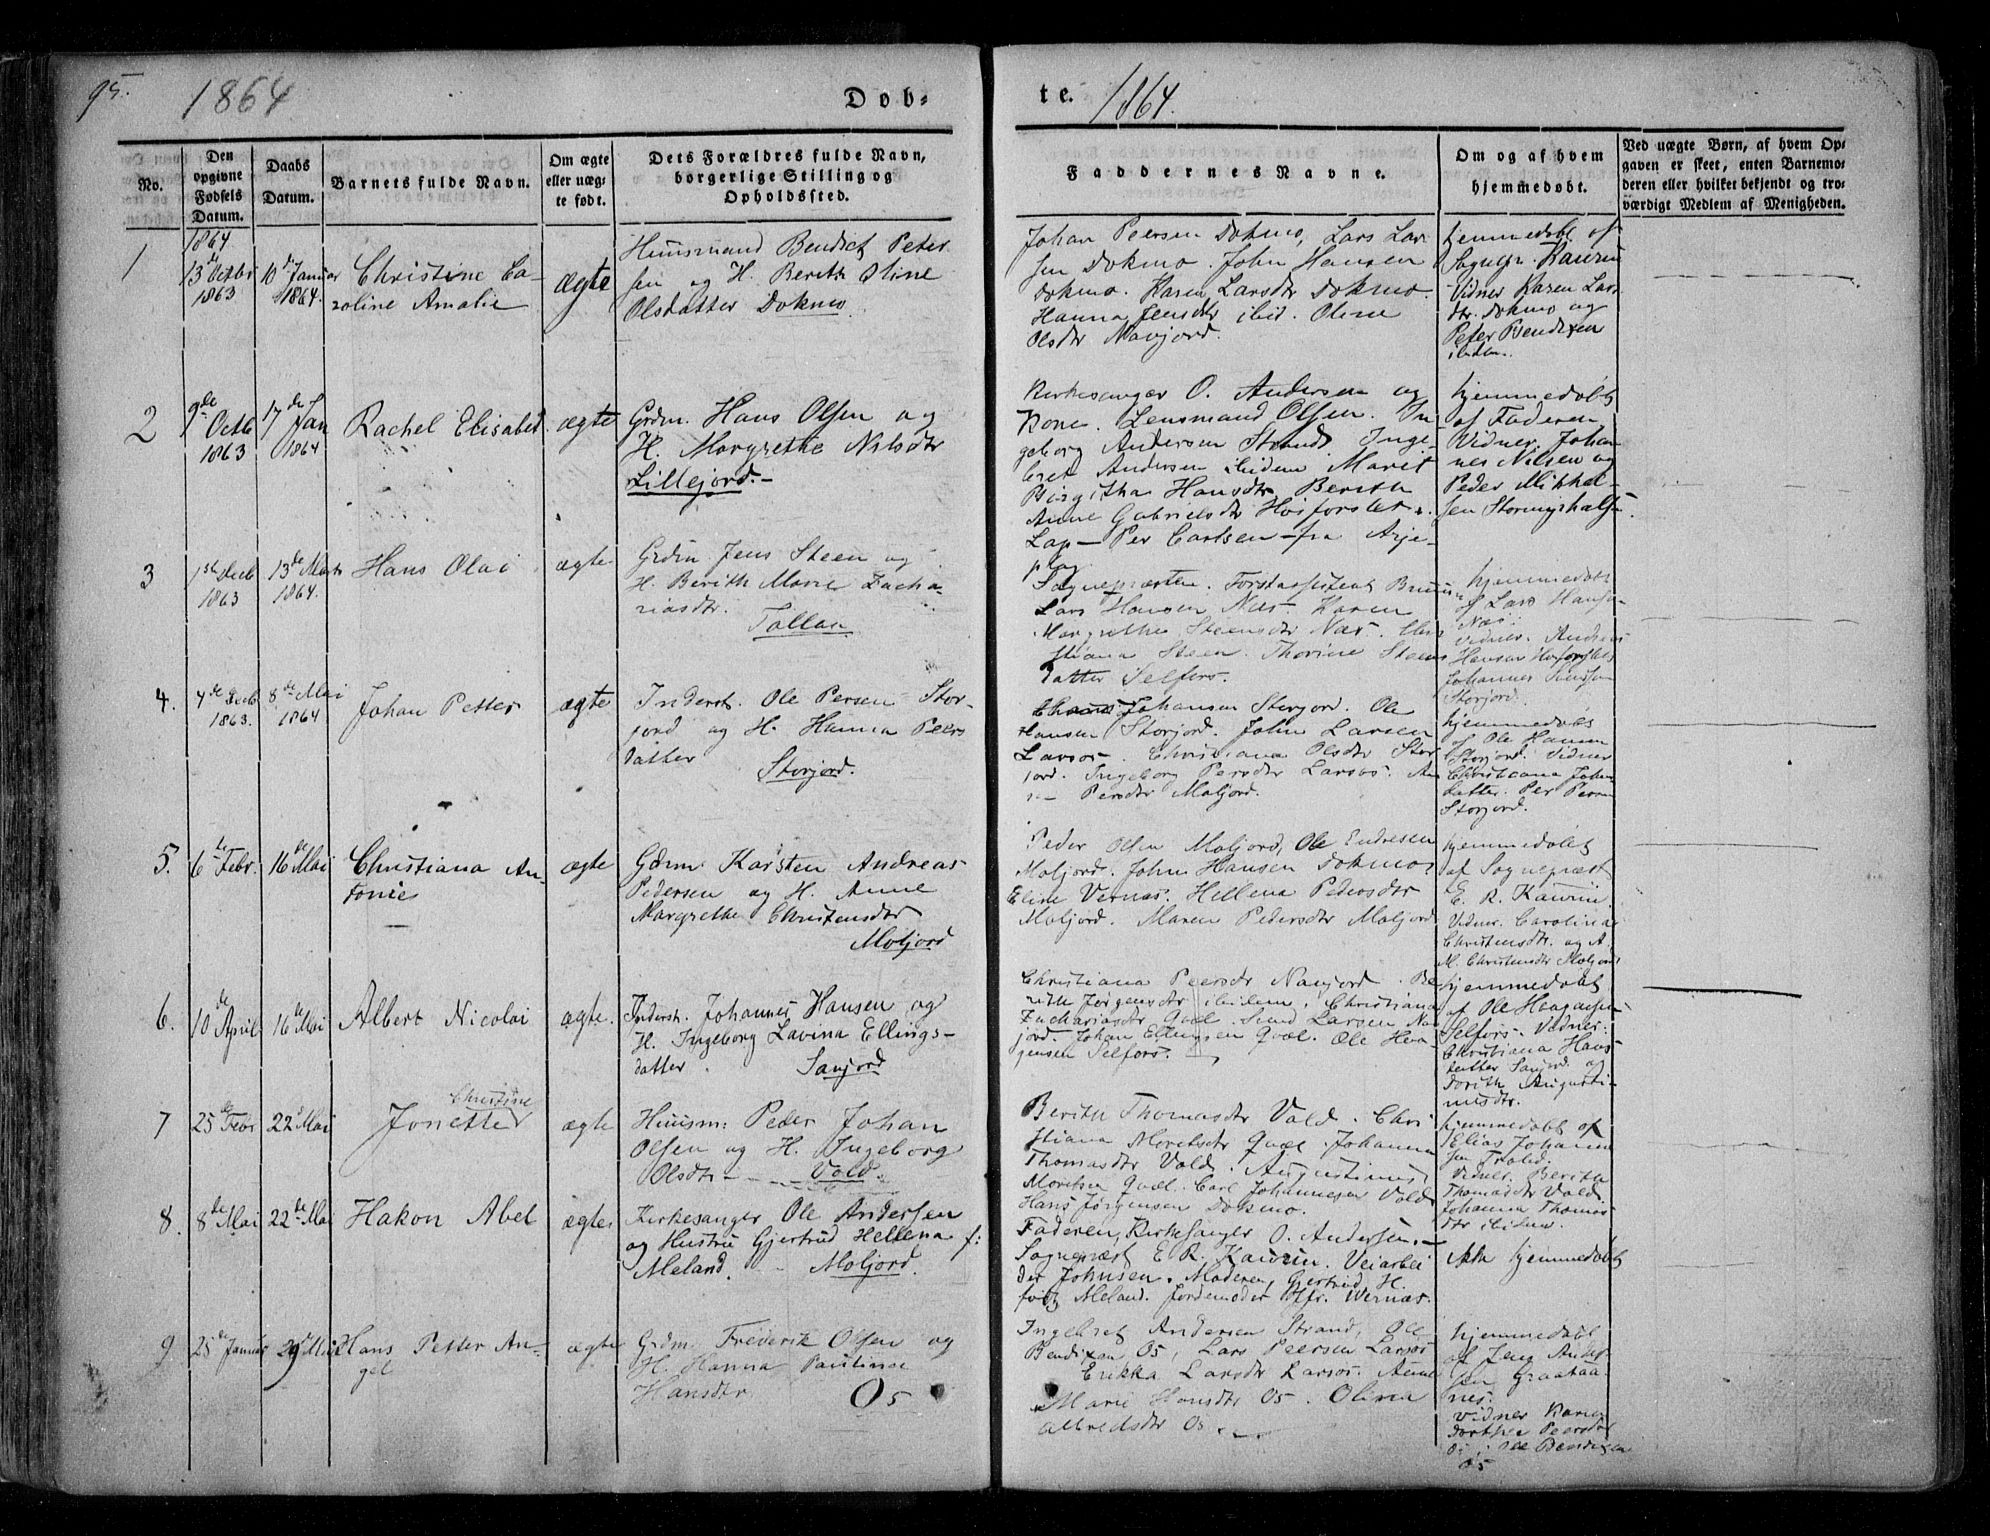 95.
1864
Døb-
te.
1864.
No.
Den
opgivne
Fødsels
Datum.
Daabs
Datum.
Barnets fulde Navn.
Om ægte
eller uæg-
te født.
Dets Forældres fulde Navn,
borgerlige Stilling og
Opholdssted.
Faddernes Navne.
Om og af hvem
hjemmedøbt.
Ved uægte Børn, af hvem Op-
gaven er skeet, enten Barnemo-
deren eller hvilket bekjendt og tro-
værdigt Medlem af Menigheden.
1864
1
13de Octbr
1863
10de Januar
1864.
Christine Ca-
roline Amalie
ægte
Huusmand Bendict Peter
sen og H. Berith Oline
Olsdatter Dokmo
Johan Peersen Dokmo, Lars Lar
sen Dokmo. John Hansen
Dokmo. Karen Larsdtr Dokmo.
Hanna Jensdtr ibid. Oline
Olsdtr Navjord.
hjemmedøbt af
Sognepr. Kaurin
Vidner Karen Lars
dtr. Dokmo og
Peter Bendixen
ibidem.
2
9de Octb
1863
17de Jan
1864
Rachel Elisabet
ægte
Grdm. Hans Olsen og
H. Margrethe Nilsdtr
Lillejord.-
Kirkesanger O. Andersen og
Kone. Lensmand Olsen. In
geborg Andersen Strand. Inge-
bret Andersen ibidem Marit
Birgitha Hansdtr Berith
Anne Gabrielsdtr Hosforslet.
Lap- Per Carlsen - fra Arje-
plog
hjemmedøbt
af Faderen
Vidner Johan
nes Nilsen og
Peder Mikkel-
sen Stormyrhalsen.
3
1st Decb
1863
13de Marts
1864.
Hans Olai
ægte
Grdm Jens Steen og
H. Berith Marie Zacha-
riasdtr.
Tollaa
Sognepræsten. Forstassistent Bruun
Lars Hansen Næs. Karen
Margrethe Steensdtr Næs. Chri
stiana Steen. Thorine Steens
datter Selfors.
hjemmedøbt
af Lars Hansen
Næs.
Vidner. Andreas
Hansen Hosforslet
Johannes Svendsen
Storjord.
4.
4de Decb
1863.
8de Mai
1864
Johan Petter
ægte
Inderst. Ole Persen Stor-
jord og H. Hanna Peers
datter
Storjord.
Johansen Storjord. Ole
Hansen Storjord. John Larsen
Larsos. Christiana Olsdtr Stor
jord. Ingeborg Persdtr Larsos. An
Persdtr Moljord.
hjemmedøbt
af Ole Hansen
Storjord. Vidner
Christiana Johan
datter. Per Persen
Storjord.
5.
6te Febr.
16de Mai
Christiana An-
tonie
ægte
Grdm Karsten Andreas
Pedersen og H. Anne
Margrethe Christensdtr
Moljord
Peder Olsen Moljord, Ole Endresen
Moljord. John Hansen Dokmo
Elise Vernæs. Hellena Pedersdtr
Moljord. Maren Pedersdtr Moljord
hjemmedøbt
af Sognepræst
E. R. Kaurin
Vidner. Carolina
Christensdtr. og A.
M. Christensdtr Moljord
6.
10de April
16de Mai
Albert Nicolai
ægte.
Inderst. Johannes Hansen og
H. Ingeborg Lavina Ellings-
datter.
Sanjord
Christiana Peersdtr Navjord. Be
rith Jørgensdtr ibidem. Christiana
Zachariasdtr Qvæl. Svend Larsen Nav
jord. Johan Ellingsen Qvæl. Ole Hea-
gensen Selfors.
hjemmedøbt
af Ole Heagensen
Selfors. Vidner:
Christiana Hans
datter Sanjord og
Dorith Augusti-
nusdtr.
7
25de Febr
22de Mai
Christine
Jonette
ægte
Huusm: Peder Johan
Olsen og H. Ingeborg
Olsdtr - Vold.
Berith Thomasdtr Vold. Chri
stiana Moritsdtr Qvæl. Johanna
Thomasdtr Vold. Augustinus
Moritsen Qvæl. Carl Johannesen Vold
Hans Jørgensen Dokmo.
hjemmedøbt af
Elias Johanne
sen Trolid.
Vidner Berith
Thomasdtr Vold
Johanna Thomas
dtr ibidem.
8.
8de Mai
22de Mai
Hakon Abel
ægte
Kirkesanger Ole Andersen
og Hustru Gjertrud Hellena f:
Meland. - Moljord.
Faderen, Kirkesanger O. Andersen.-
Sognepræst E. R. Kaurin. Veiarbei
der Johnsen. Moderen Gjertrud H.
født Meland. Jordemoder Jfr. Wernæs.
Ikke hjemmedøbt
9
25de Januar
29de Mai
Hans Petter An-
gel
ægte
Grdm. Frederik Olsen og
H. Hanna Paulina
Hansdtr
Os
Ingebret Andersen Strand, Ole
Bendixen Os, Lars Peersen Larsos
Erikka Larsdtr Larsos. Anne
Marie Hansdtr Os. Olina
Albredsdtr Os.
hjemmedøbt
af Jens Andr
sen Graataa-
nes.
Vidner Karen
Dorthea Peersdtr
Os, Ole Bendixen
Os